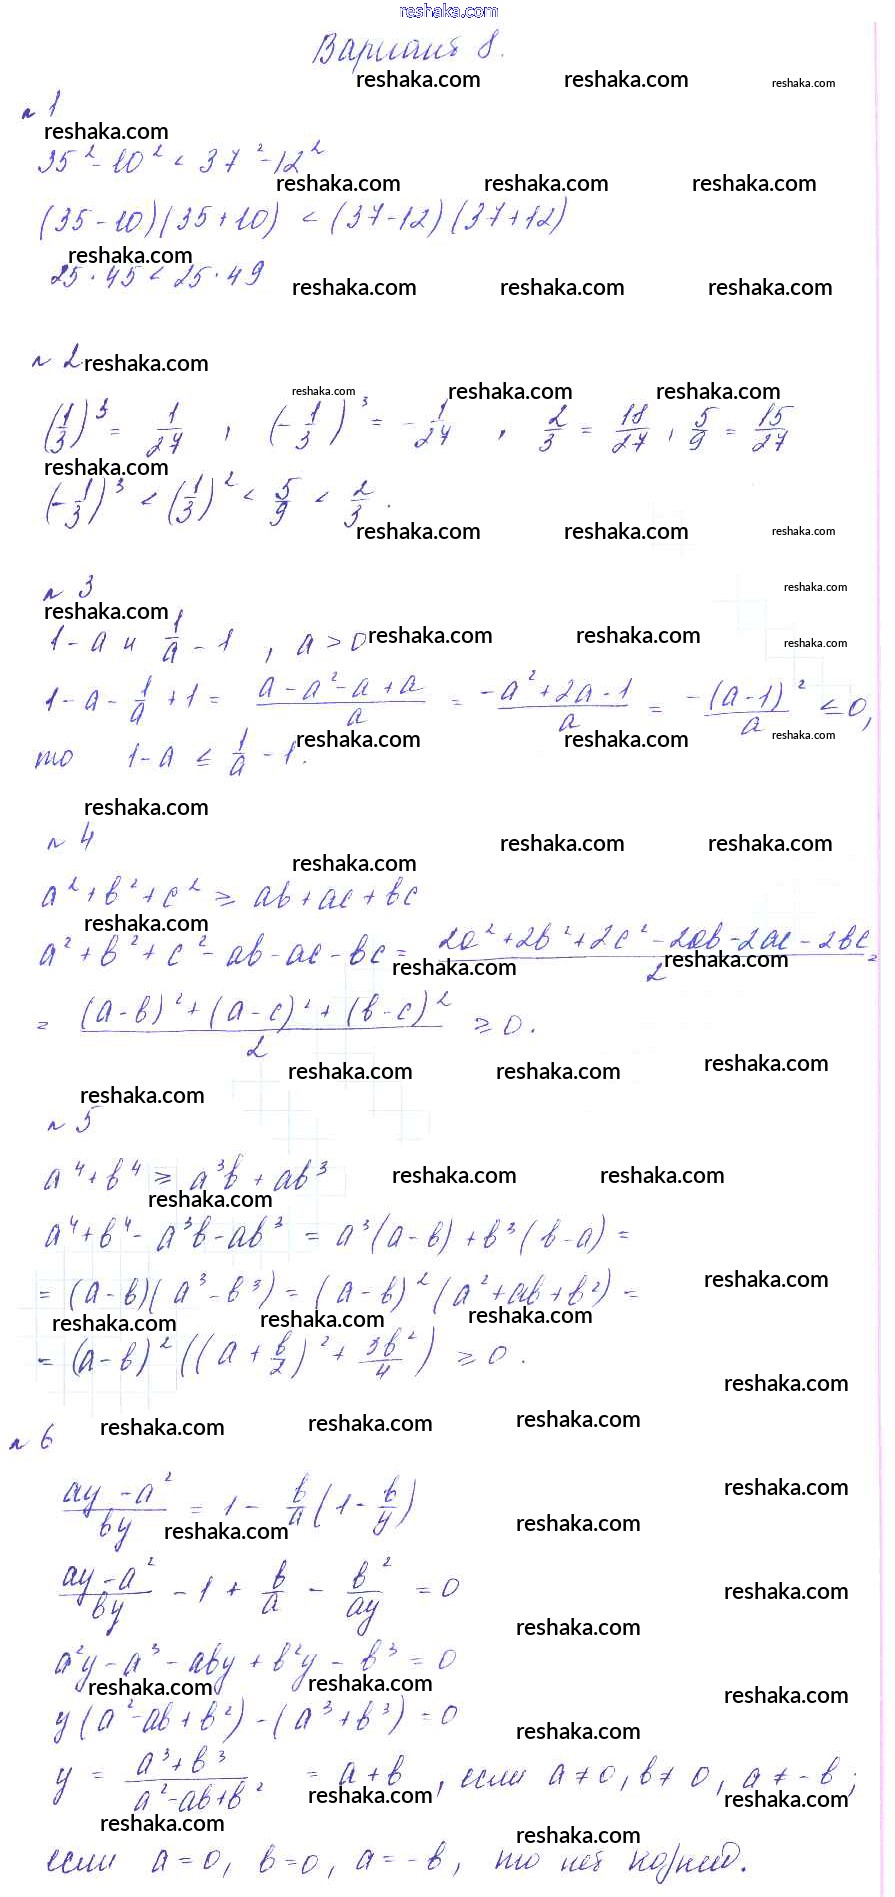 reshaka.com
Вариант 8.
№ 1
35² - 10² < 37² - 12²
(35 - 10)(35 + 10) < (37 - 12)(37 + 12)
25 · 45 < 25 · 49
№ 2
(1/3)³ = 1/27 , (-1/3)³ = -1/27 , 2/3 = 18/27 , 5/9 = 15/27
(-1/3)³ < (1/3)² < 5/9 < 2/3 .
№ 3
1 - a и 1/a - 1 , a > 0
1 - a - 1/a + 1 = (a - a² - a + a)/a = (-a² + 2a - 1)/a = -(a - 1)²/a ≤ 0,
то 1 - a ≤ 1/a - 1.
№ 4
a² + b² + c² ≥ ab + ac + bc
a² + b² + c² - ab - ac - bc = (2a² + 2b² + 2c² - 2ab - 2ac - 2bc)/2 =
= ((a - b)² + (a - c)² + (b - c)²)/2 ≥ 0.
№ 5
a⁴ + b⁴ ≥ a³b + ab³
a⁴ + b⁴ - a³b - ab³ = a³(a - b) + b³(b - a) =
= (a - b)(a³ - b³) = (a - b)²(a² + ab + b²) =
= (a - b)²((a + b/2)² + 3b²/4) ≥ 0.
№ 6
(ay - a²)/by = 1 - b/a (1 - b/y)
(ay - a²)/by - 1 + b/a - b²/ay = 0
a²y - a³ - aby + b²y - b³ = 0
y(a² - ab + b²) - (a³ + b³) = 0
y = (a³ + b³)/(a² - ab + b²) = a + b , если a ≠ 0, b ≠ 0, a ≠ -b;
если a = 0, b = 0, a = -b, то нет корней.